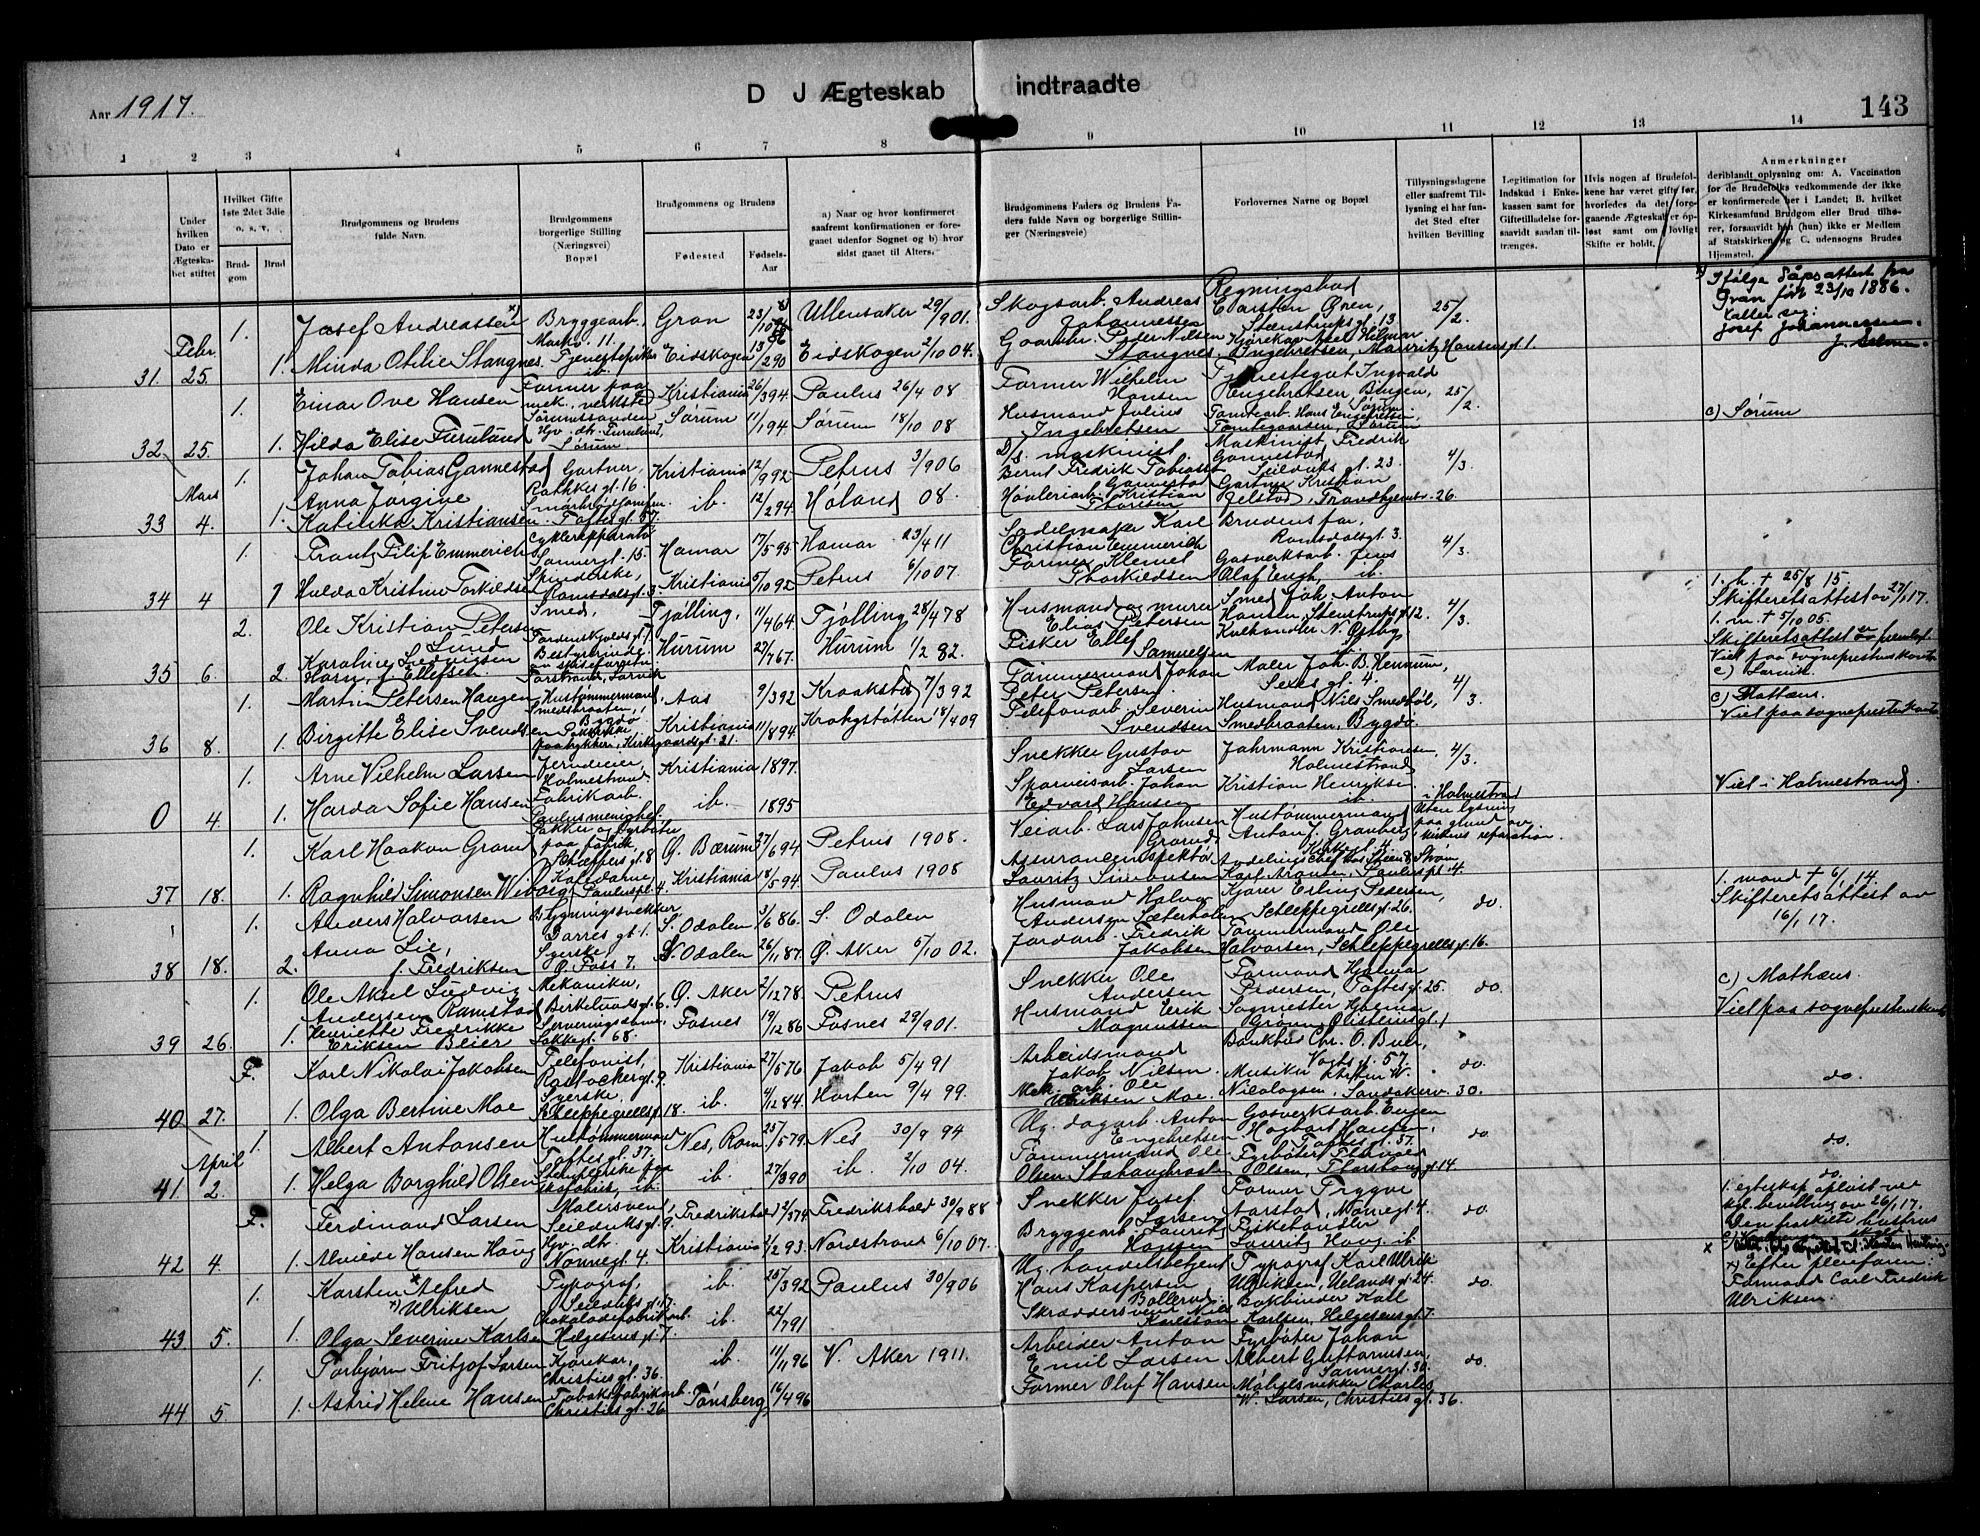 D J Ægteskab indtraadte
Aar 1917.
143
1 2 3 4 5 6 7 8 9 10 11 12 13 14
Under hvilken Dato er Ægteskabet stiftet
Hvilket Gifte 1ste 2det 3die o. s. v.
Brudgom
Brud
Brudgommens og Brudens fulde Navn.
Brudgommens borgerlige Stilling (Næringsvei) Bopæl
Brudgommens og Brudens
Fødested
Fødsels-Aar
a) Naar og hvor konfirmeret saafremt konfirmationen er foregaaet udenfor Sognet og b) hvor sidst gaaet til Alters.
Brudgommens Faders og Brudens Faders fulde Navn og borgerlige Stillinger (Næringsveie)
Forlovernes Navne og Bopæl
Tillysningsdagene eller saafremt Tillysning ei har fundet Sted efter hvilken Bevilling
Legitimation for Indskud i Enkekassen samt for Giftetilladelse forsaavidt saadan tiltrænges.
Hvis nogen af Brudefolkene har været gifte før, hvorledes da det foregaaende Ægteskab er opløst samt om lovligt Skifte er holdt.
Anmerkninger deriblandt oplysning om: A. Vaccination for de Brudefolks vedkommende der ikke er konfirmerede her i Landet; B. hvilket Kirkesamfund Brudgom eller Brud tilhører, forsaavidt han (hun) ikke er Medlem af Statskirken og C. udensogns Brudes Hjemsted.
31 Febr. 25.
1. Josef Andreassen x) Bryggearb. Markv. 11. Gran 23/10 86 Ullensaker 29/901.
Skogsarb. Andreas Johannessen
Regningsbud Carsten Ören, Steenstrups gt. 13
25/2.
x) Ifølge dåpsattest fra Gran født 23/10 1886. Kaller seg: Josef Johannessen.
1. Minda Otilie Stangnes. Tjenestepike ib. Eidskogen 13/290 Eidskogen 2/10 04.
Gaardbr. Peder Nilsen Stangnes.
Kjørekar Axel Hilmar Ingebretsen, Markv.
32 25.
1. Einar Ove Hansen Former paa mek. verksted Kristiania 26/394 Paulus 26/4 08
Former Wilhelm Hansen
Tjenestegut Ingvald Engebretsen, Bingen, Sørum
25/2.
1. Hilda Elise Furulund Hjv. dtr. Furulund, Sørum Sørum 11/194 Sørum 18/10 08
Husmand Julius Ingebretsen
Tomtearb. Hans Engebretsen, Tomtegaarden, Sørum
c) Sørum
33 Mars 4.
1. Johan Tobias Gannestad Gartner, Rathkes gt. 16. Kristiania 12/992 Petrus 3/906
D/s. maskinist. Bernt Fredrik Tobias Gannestad
Maskinist Fredrik Gannestad Seilduks gt. 23.
4/3.
1. Anna Jørgine Katinka Kristiansen. Toftes gt. 57. ib. 12/294. Høland 08.
Høvleriarb. Kristian Thoresen
Gartner Kristian Trondhjemsv. 26.
34 4
1. Frantz Filip Emmerich Sannergt. 15. Hamar 17/595 Hamar 23/411
Sadelmaker Karl Christian Emmerich
Brudens far, Romsdalsgt. 3.
4/3.
1 Hulda Kristine Torkildsen Spinderske, Romsdalsgt. 3. Kristiania 5/1092 Petrus 6/10 07.
Former Klemet Thorkildsen
Gasverksarb. Jens Olaf Engh, ib.
35 6.
2. Ole Kristian Petersen Lund Smed, Tordenskjolds gt. 7. Tjølling, 11/464. Tjølling 28/478
Husmand og murer Elias Petersen
Smed Joh. Anton Hansen, Steenstrups gt. 12.
4/3.
1. h. † 25/8 15. Skifteretsattest av 27/1 17.
2. Karoline Ludvigsen Horn, f. Ellefsen Bestyrerinde Torstrand, Larvik Hurum 27/767. Hurum 1/2 82.
Fisker Ellef Samuelsen
Kulhandler N. Østby ib.
1. m. † 5/10 05. Skifteretsattest er fremlagt
Viet paa sogneprestens kontor
c) Larvik.
36 8.
1. Martin Petersen Haugen Hustømmermand, Smedbraaten, Bygdø. Aas 9/392 Kraakstad 7/392
Tømmermand Johan Peter Petersen
Maler Joh. B. Hennum, Sexes gt. 4.
4/3.
c) Mathæus.
1. Birgitte Elise Svendsen Kirkegaardsgt. 21. Kristiania 11/894 Krohgstøtten 18/409
Telefonarb. Severin Svendsen
Husmand Nils Smedbøl, Smedbraaten, Bygdø.
Viet paa sogneprestens kontor
0 4.
1. Arne Vilhelm Larsen Jerndreier, Holmestrand Kristiania 1897.
Snekker Gustav Larsen
Fuhrmann Kristiansen, Holmestrand
4/3.
1. Harda Sofie Hansen Fabrikarb. Paulus menighet ib. 1895
Skarveisarb. Johan Edvard Hansen
Kristian Henriksen ib.
i Holmestrand
Viet i Holmestrand
37 18.
1. Karl Haakon Grand Pakker og fyrbøter paa fabrik, Schleppegr. gt. 8 Ø. Bærum 27/694 Petrus 1908.
Veiarb. Lars Johnsen Grand
Hustømmermand Anton J. Granberg, Kirkegt. 4.
Uten lysning paa grund av kirkens reparation.
1. Ragnhild Simonsen Wiborg Kassedame Pauluspl. 4. Kristiania 18/594. Paulus 1908
Assuranceinspektør Lauritz Simonsen
Karl Pauluspl. 4.
38 18.
1. Anders Halvorsen Bygningssnekker Darres gt. 1. S. Odalen 3/686. S. Odalen
Husmand Halvor Andersen Sæterholen
Kjører Erling Pedersen, Schleppegrells gt. 26.
do.
1. mand † 6/1 14. Skifteretsattest av 16/1 17.
2. Anna Lie, f. Fredriksen Syerske Ø. Foss 7, S. Odalen 26/11 87. Ø. Aker 5/10 02.
Jordarb. Fredrik Jakobsen
Tømmermand Ole Halvorsen, Schleppegrells gt. 16.
39 26.
1. Ole Aksel Ludvig Andersen Ramstad Mekaniker, Birkelunds gt. 6. Ø. Aker 2/1278. Petrus
Snekker Ole Andersen
Formand Hjalmar Pedersen, Toftes gt. 25.
do.
c) Mathæus.
1. Henriette Fredrikke Eriksen Beier Serveringsdame, Løkkegt. 68. Fosnes 19/12 86 Fosnes 29/901.
Husmand Erik Magnussen
Sagmester Halvor
Viet paa sogneprestens kontor
40 27.
F. Karl Nikolai Jakobsen Telefonist, Rostockergt. 9. Kristiania 27/576 Jakob 5/4 91
Arbeidsmand Jakob Nilsen.
Bankbud Chr. O. Buer, Vogts gt. 57.
do.
do.
1. Olga Bertine Moe Syerske, Schleppegrells gt. 18. ib. 4/1284. Horten 9/4 99.
Mek. arb. Ole Eriksen Moe.
Musiker Karsten W. Nicolaysen, Sandakerv. 30.
41 April 2.
1. Albert Antonsen Hustømmermand Toftes gt. 37. Nes, Rom. 25/579. Nes 30/9 94
Ug. dagarb. Anton Engebretsen.
Gasverksarb. Eugen Hagbart Hansen, Toftes gt. 37.
do.
do.
1. Helga Borghild Olsen skofabrik, ib. ib. 27/390 ib. 2/10 04.
Tømmermand Ole Olsen
Fyrbøter Olsen, gt. 14.
do.
42 4.
F. Ferdinand Larsen Malersvend Seilduks gt. 9. Fredrikshald 2/374 Fredrikshald 30/988
Snekker Josef Larsen
Former Trygve Aarstad, Nonnegt. 4.
do.
1. egteskap opløst ved kgl. bevilling av 26/1 17.
1. Alvilde Hansen Haug Hjv. dtr. Nonnegt. 4. Kristiania 1/293. Nordstrand 6/10 07.
Bryggearb. Lauritz Hansen
Fiskehandler Lauritz Haug ib.
43 5.
1. Karsten x Alfred x) Ulriksen Typograf, Seilduks gt. 17. ib. 25/392 Paulus 30/906
Ug. handelsbetjent Hans Kaspersen Bollerud.
Typograf Karl Ulrik Ulriksen, Uelands gt. 24.
do.
x) Efter pleiefaren: Formand Carl Fredrik Ulriksen.
1. Olga Severine Karlsen Chokoladefabrikarb. Helgesens gt. 7. ib. 22/791
Skræddersvend Nils Karlsson
Bokbinder Karl Karlsen, Helgesens gt. 7.
44 5.
1. Torbjørn Fritjof Larsen Kjørekar, Christies gt. 36. ib. 11/11 96 V. Aker 1911.
Arbeider Anton Emil Larsen
Fyrbøter Johan Albert Guttormsen, Sannergt. 30.
do.
1. Astrid Helene Hansen Tobaksfabrikarb. Christies gt. 26 Tønsberg 16/496
Former Olaf Hansen
Møbelsnekker Charles W. Larsen, Christies gt. 36.